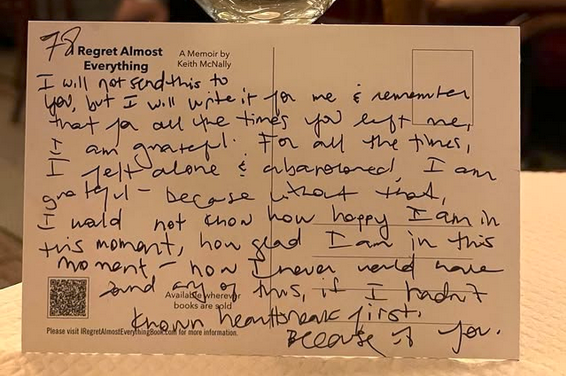 78
I Regret Almost
Everything
A Memoir by
Keith McNally
I will not send this to
you, but I will write it for me & remember
that for all the times you left me,
I am grateful. For all the times,
I felt alone & abandoned, I am
grateful - because without that,
I would not know how happy I am in
this moment, how glad I am in this
moment - how I never would have
any of this, if I hadn't
known heartbreak first.
Because of you.
Available wherever
books are sold
Please visit IRegretAlmostEverythingBook.com for more information.